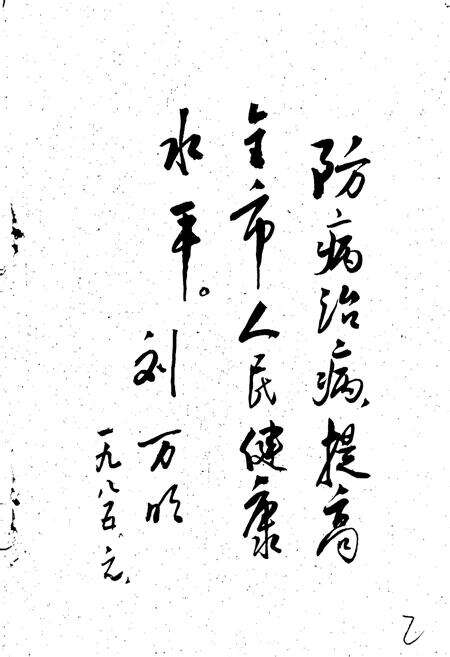 防病治病、提高
全市人民健康
水平。
刘万明
一九八五、元、